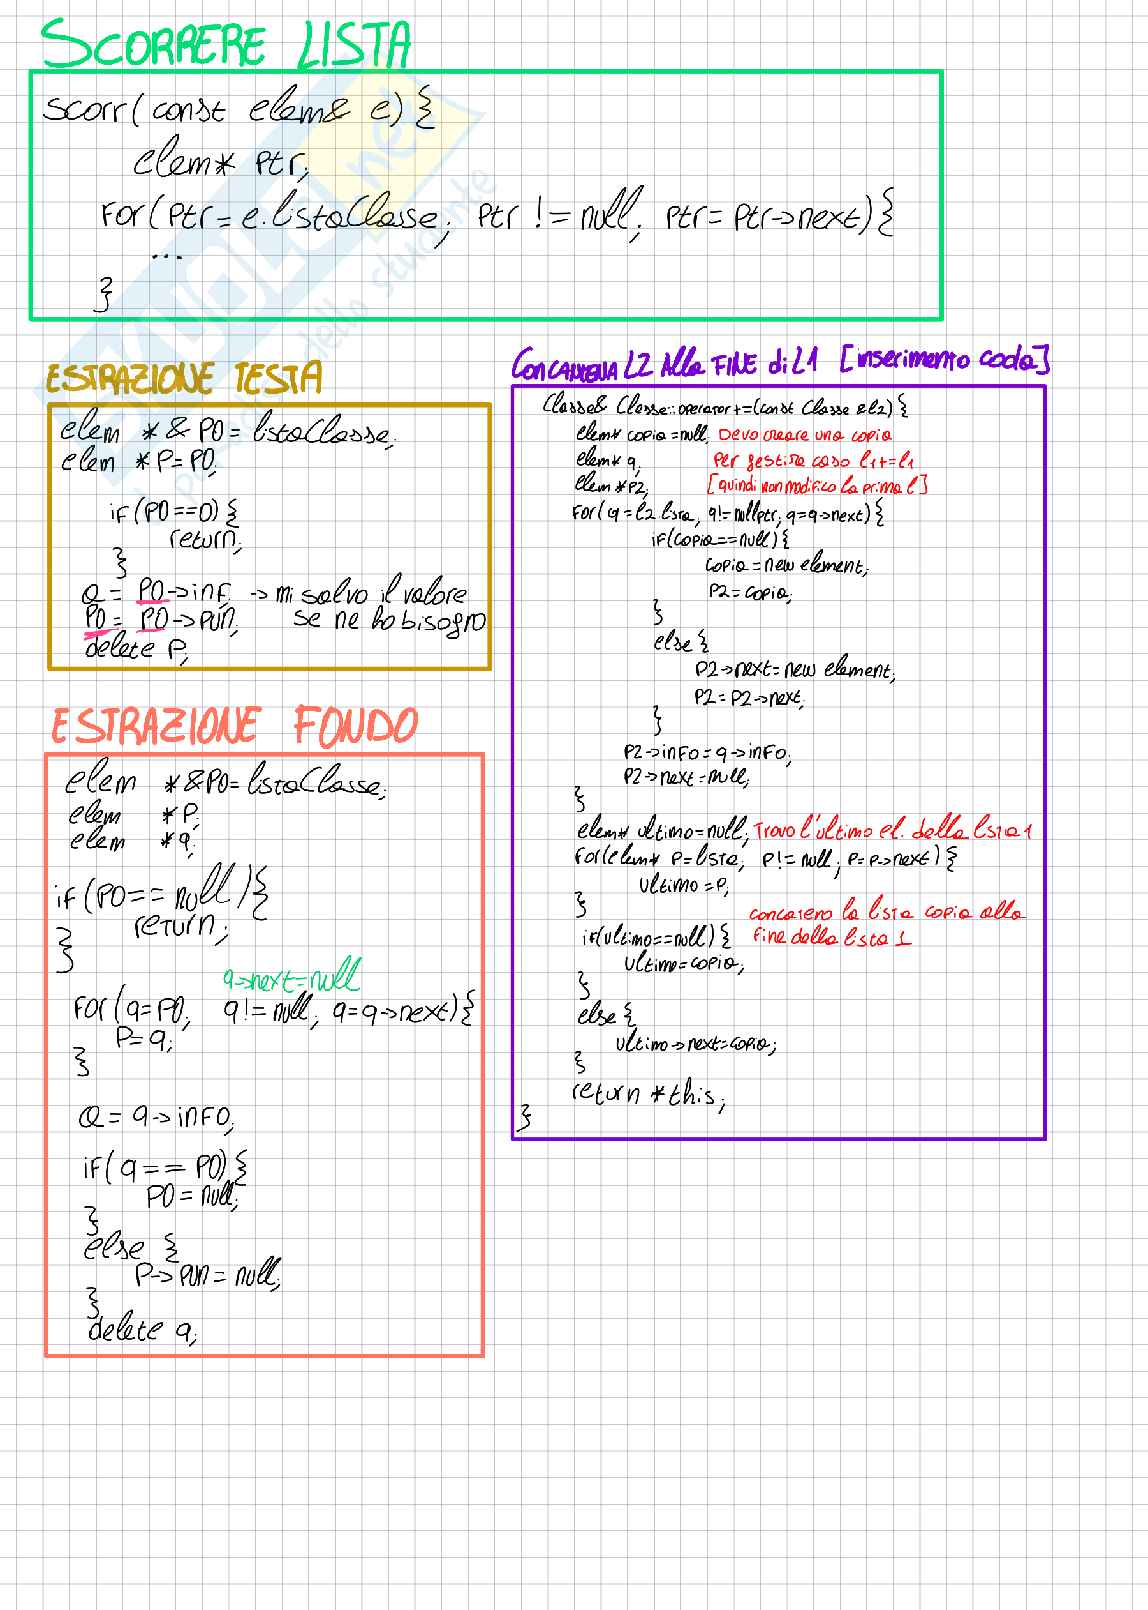 SCORRERE LISTA
scorr(const elem& e){
elem* ptr;
for(ptr=e.listaClasse; ptr != null; ptr=ptr->next){
...
}
ESTRAZIONE TESTA
elem *& P0=listaClasse;
elem *P=P0;
if(P0==0){
return;
}
a= P0->inf; -> mi salvo il valore
P0= P0->pun; se ne ho bisogno
delete P;
ESTRAZIONE FONDO
elem *&P0=listaClasse;
elem *P;
elem *q;
if(P0==null){
return;
}
q->next=null
for(q=P0; q!=null; q=q->next){
P=q;
}
a=q->info;
if(q==P0){
P0=null;
}
else{
P->pun=null;
}
delete q;
CONCATENA L2 Alla FINE di L1 [inserimento coda]
Classe& Classe::operator+=(const Classe &l2){
elem* copia=null; Devo creare una copia
elem* q; per gestire caso l1+=l1
elem*P2; [quindi non modifico la prima l]
for(q=l2.lista; q!=nullptr; q=q->next){
if(copia==null){
copia=new element;
P2=copia;
}
else{
P2->next=new element;
P2=P2->next;
}
P2->info=q->info;
P2->next=null;
}
elem* ultimo=null; Trovo l'ultimo el. della lista 1
for(elem* P=lista; P!=null; P=P->next){
ultimo=P;
}
concateno la lista copia alla
if(ultimo==null){ fine della lista 1
ultimo=copia;
}
else{
ultimo->next=copia;
}
return *this;
}
SKUOLA.net
dello studente